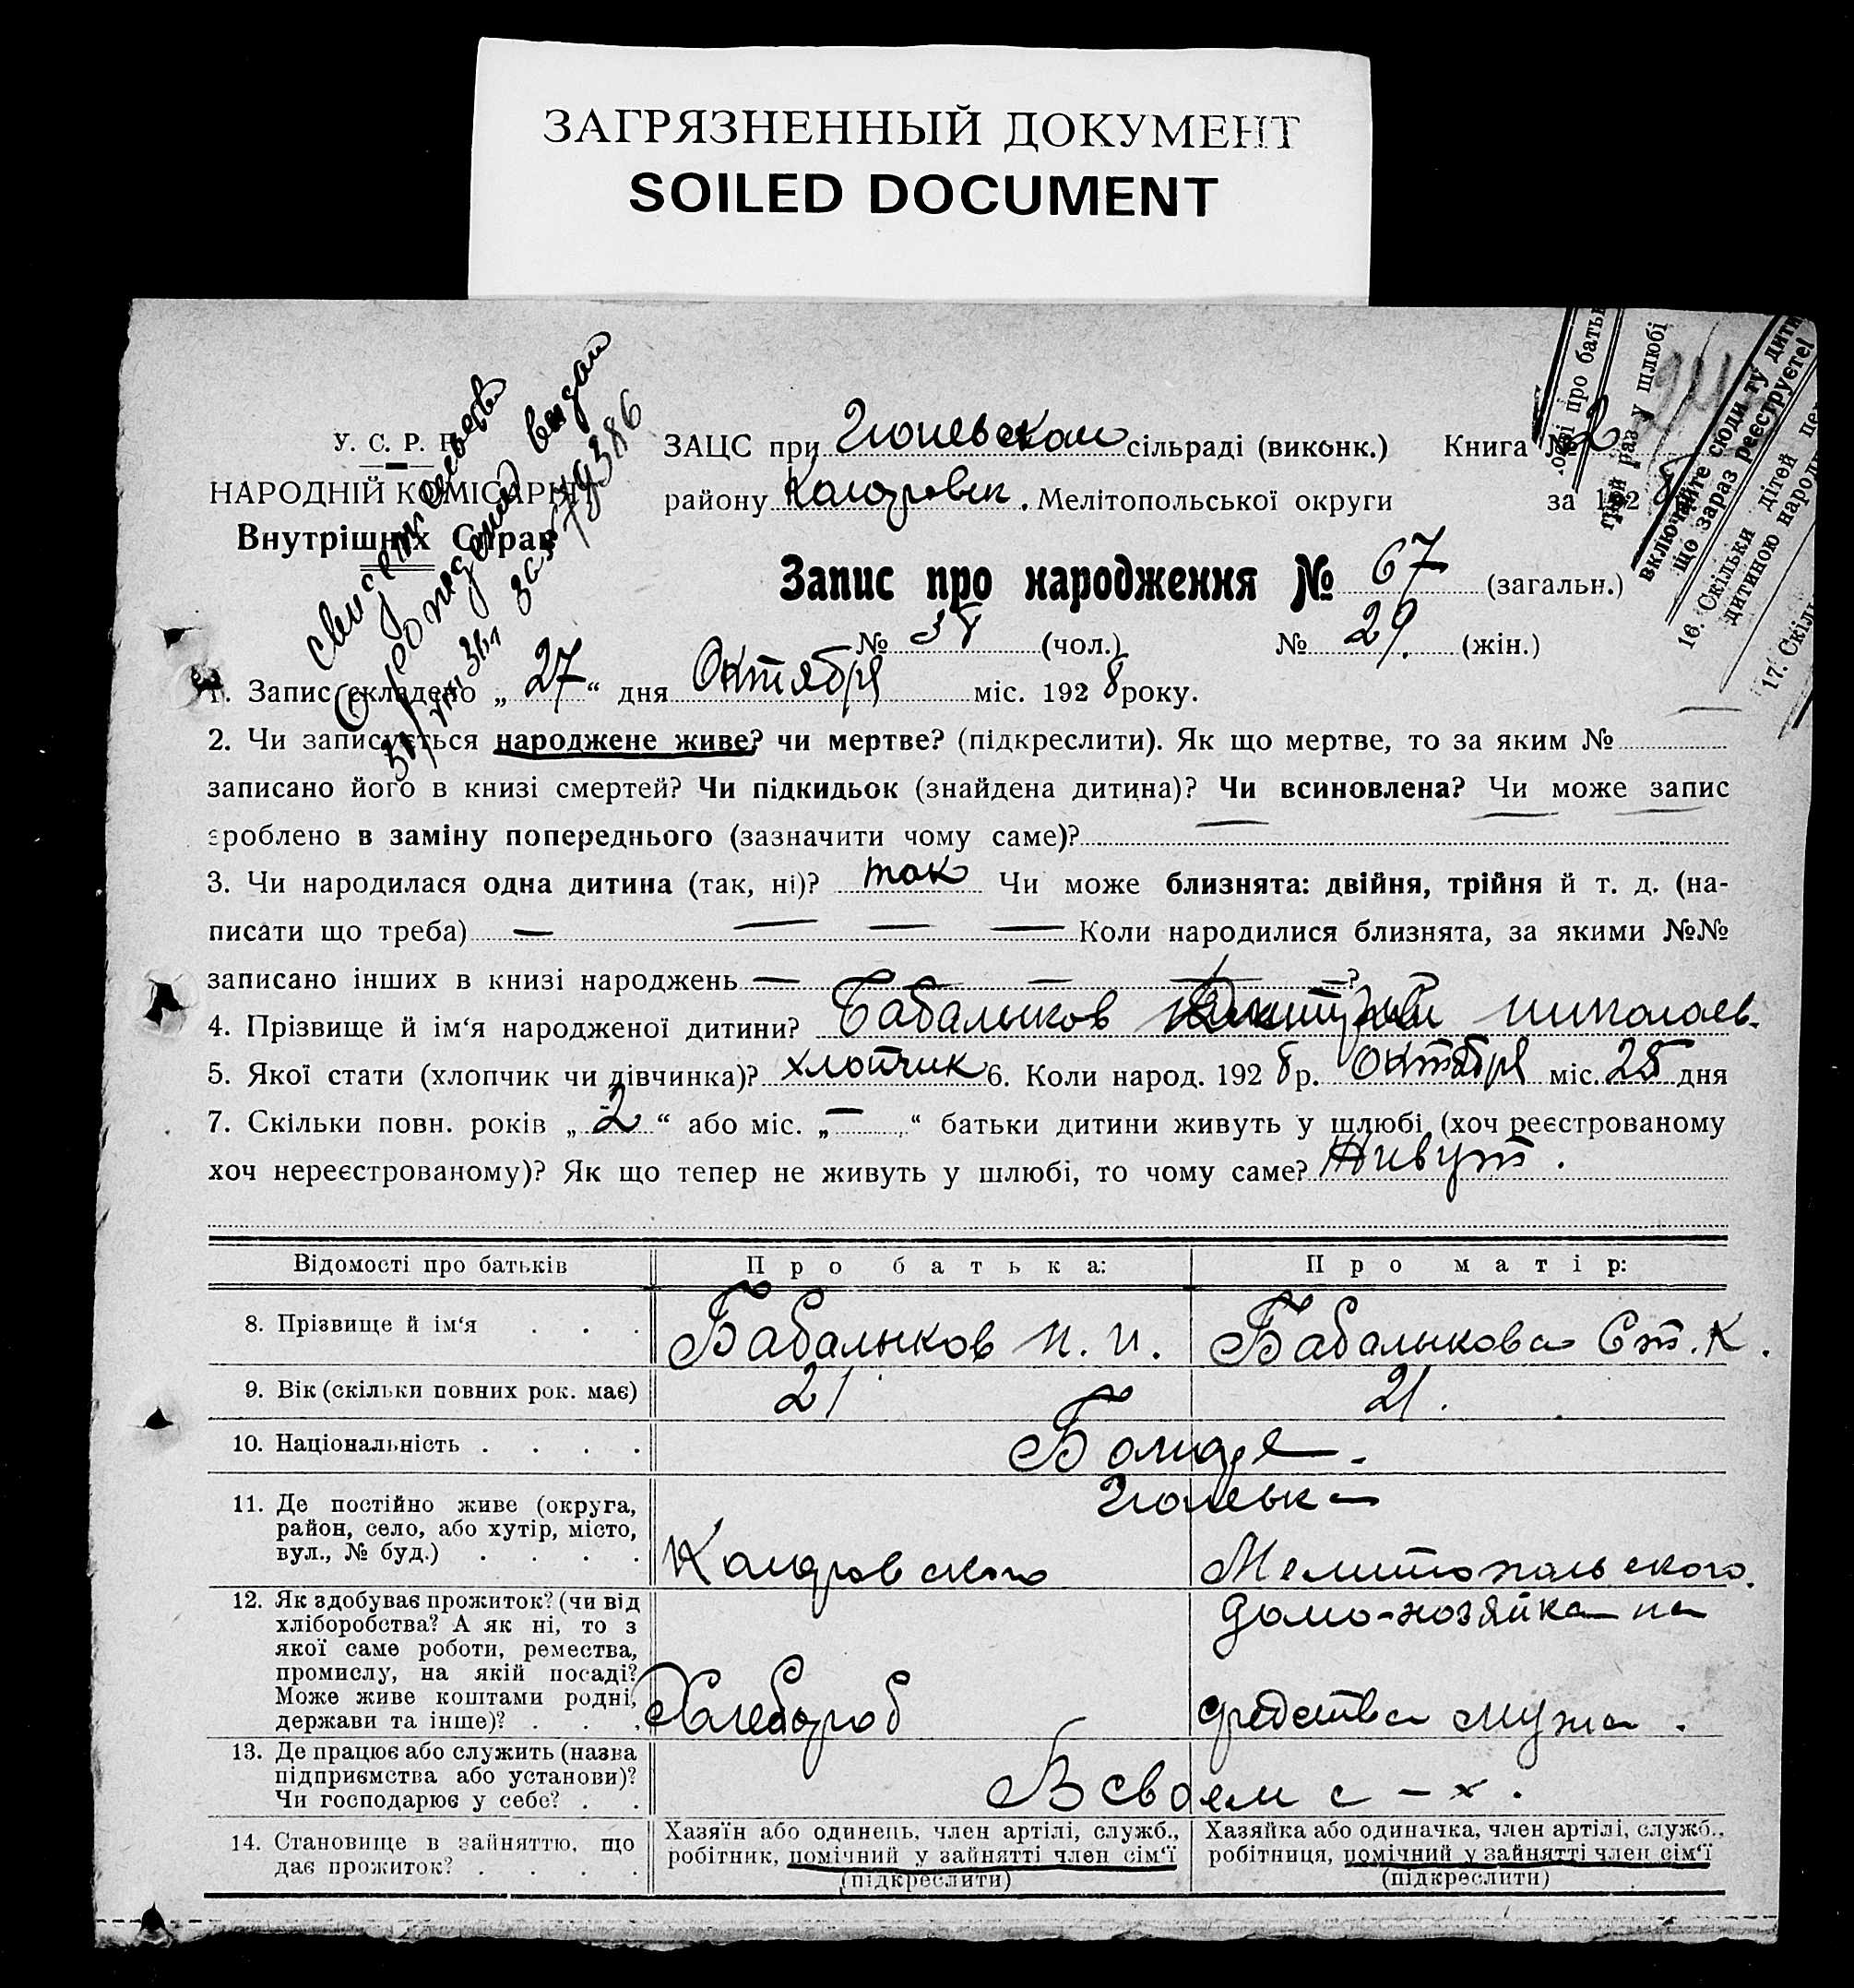 ЗАГРЯЗНЕННЫЙ ДОКУМЕНТ
SOILED DOCUMENT
У. С. Р. Р.
НАРОДНІЙ КОМІСАРІЯТ
Внутрішніх Справ
свидетельство
о рождении выдан
за № 79386
ЗАЦС при Гюневском сільраді (виконк.) Книга № 2
району Коларовск. Мелітопольської округи за 1928
Запис про народження № 67 (загальн.)
№ 38 (чол.) № 29. (жін.)
1. Запис складено „ 27 “ дня Октября міс. 1928 року.
2. Чи записується народжене живе? чи мертве? (підкреслити). Як що мертве, то за яким №
записано його в книзі смертей? Чи підкидьок (знайдена дитина)? Чи всиновлена? Чи може запис
зроблено в заміну попереднього (зазначити чому саме)?
3. Чи народилася одна дитина (так, ні)? так Чи може близнята: двійня, трійня й т. д. (на-
писати що треба) — — — — Коли народилися близнята, за якими №№
записано інших в книзі народжень — — — — ?
4. Прізвище й ім‘я народженої дитини? Бабалыков Николаев.
5. Якої стати (хлопчик чи дівчинка)? хлопчик 6. Коли народ. 1928 р. Октября міс. 25 дня
7. Скільки повн. років „ 2 “ або міс. „ — “ батьки дитини живуть у шлюбі (хоч реєстрованому
хоч нереєстрованому)? Як що тепер не живуть у шлюбі, то чому саме? Живут.
Відомості про батьків Про батька: Про матір:
8. Прізвище й ім‘я . . . Бабалыков Н. И. Бабалыкова Ст. К.
9. Вік (скільки повних рок. має) 21 21.
10. Національність . . . . Болгаре.
11. Де постійно живе (округа, район, село, або хутір, місто, вул., № буд.) . . . . Гюневка
Коларовского Мелитопольского.
12. Як здобуває прожиток? (чи від хліборобства? А як ні, то з якої саме роботи, ремества, промислу, на якій посаді? Може живе коштами родні, держави та інше)? . . . Хлебороб домо-хозяйка на средства мужа.
13. Де працює або служить (назва підприємства або установи)? Чи господарює у себе? . . В своем с-х.
14. Становище в зайняттю, що дає прожиток? . . . . Хазяїн або одинець, член артілі, служб., робітник, помічний у зайнятті член сім‘ї (підкреслити) Хазяйка або одиначка, член артілі, служб., робітниця, помічний у зайнятті член сім‘ї (підкреслити)
про батьк
раз у шлюбі
включайте сюди ту дити
що зараз реєструєте!
16. Скільки дітей
дитиною народ
17. Скіл